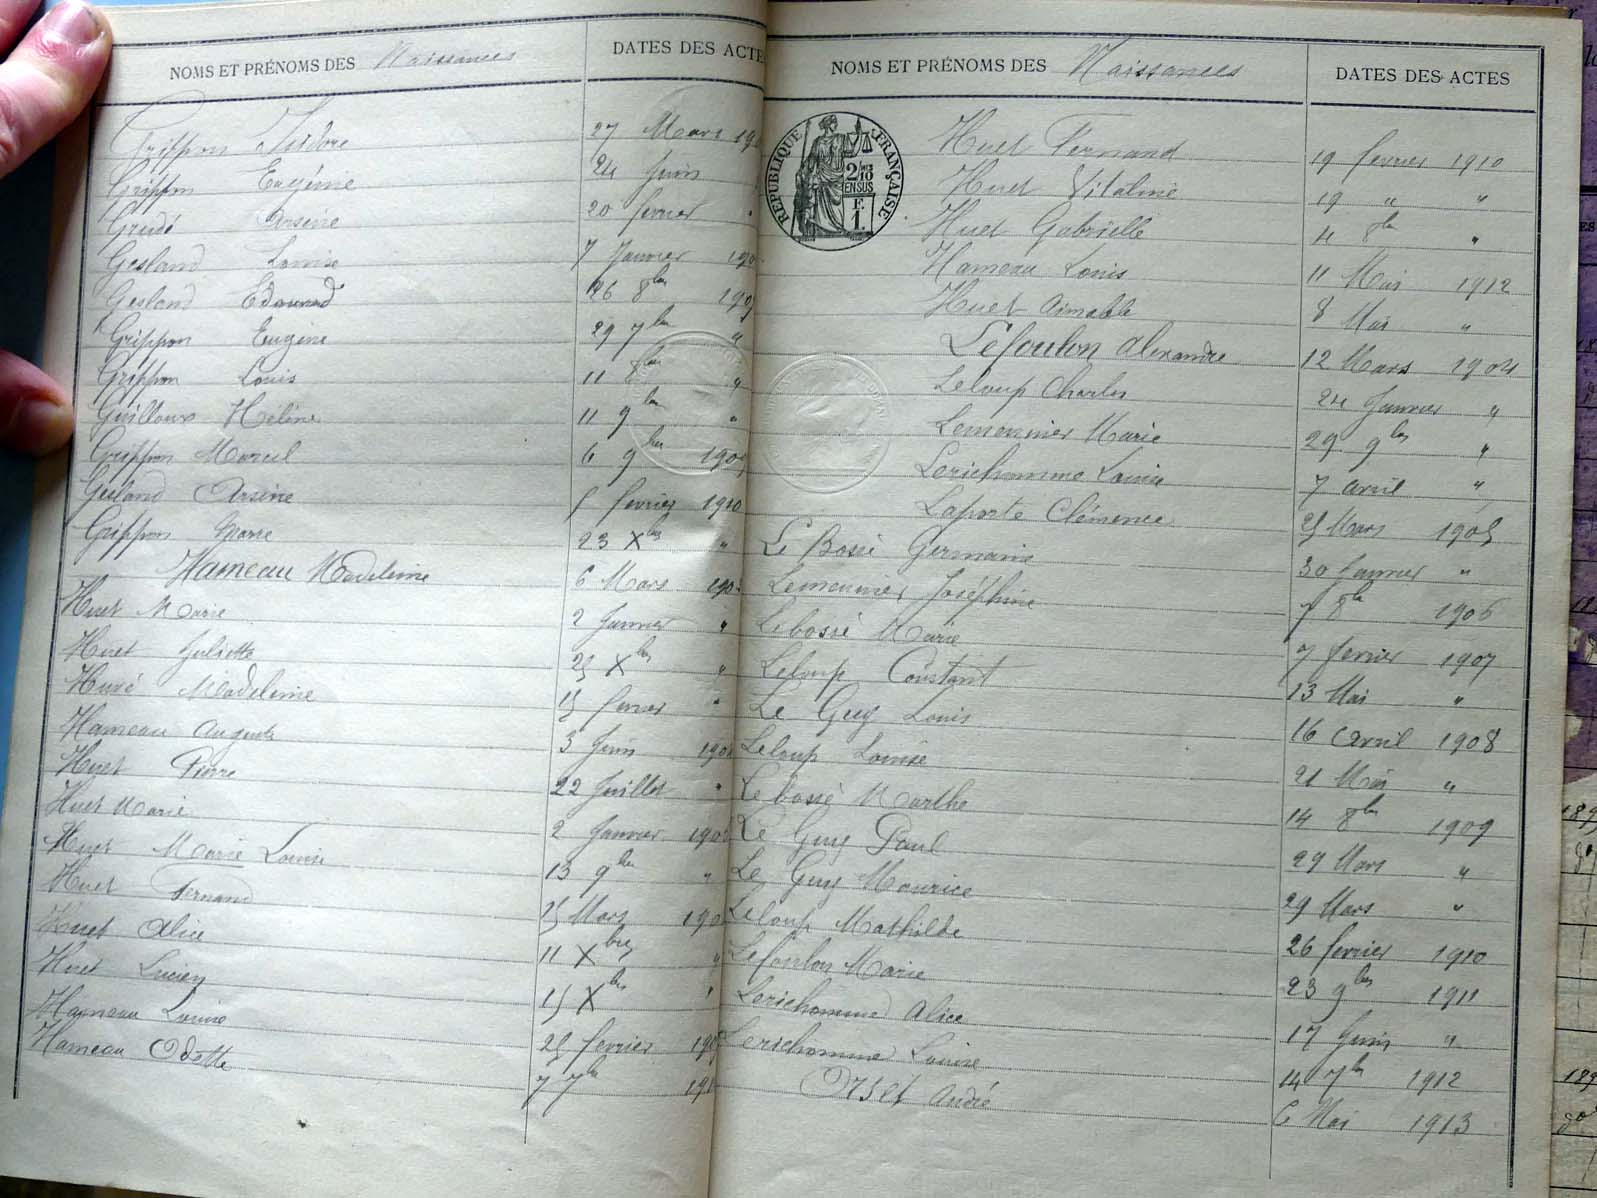 NOMS ET PRÉNOMS DES Naissances DATES DES ACTE
Grippon Isidore 27 Mars 19
Grippon Eugénie 24 Juin
Grudé Arsène 20 fevrier "
Gesland Louise 7 Janvier 190
Gesland Edouard 26 8bre 1907
Grippon Eugène 29 7bre "
Grippon Louis 11 8bre "
Guilloux Hélène 11 9bre "
Grippon Marcel 6 9bre 190
Gesland Arsène fevrier 1910
Grippon Marie 23 Xbre "
Hameau Madeleine 6 Mars 190
Huet Marie 2 Janvier "
Huet Juliette 25 Xbre "
Huré Madeleine 15 fevrier "
Hameau Auguste 3 Juin 190
Huet Pierre 22 Juillet "
Huet Marie 2 Janvier 190
Huet Marie Louise 13 9bre "
Huet Fernand 15 Mars 190
Huet Alice 11 Xbre "
Huet Lucien 15 Xbre "
Hameau Louise 25 fevrier 190
Hameau Odette 7 7bre 191
NOMS ET PRÉNOMS DES Naissances DATES DES ACTES
RÉPUBLIQUE FRANÇAISE
2/10
EN SUS
F.
1.
Huet Fernand 19 fevrier 1910
Huet Vitaline 19 " "
Huet Gabrielle 4 8bre "
Hameau Louis 11 Mai 1912
Huet Aimable 8 Mai "
Lefoulon Alexandre 12 Mars 1904
Leloup Charles 24 Janvier "
Lemeunier Marie 29 9bre "
Lerichomme Louise 7 Avril "
Laporte Clémence 25 Mars 1905
Le Bossé Germaine 30 Janvier "
Lemeunier Joséphine 7 8bre 1906
Lebossé Marie 7 fevrier 1907
Leloup Constant 13 Mai "
Le Guy Louis 16 Avril 1908
Leloup Louise 21 Mai "
Lebossé Marthe 14 8bre 1909
Le Guy Paul 29 Mars "
Le Guy Maurice 29 Mars "
Leloup Mathilde 26 fevrier 1910
Lefoulon Marie 23 9bre 1911
Lerichomme Alice 17 Juin "
Lerichomme Louise 14 7bre 1912
Orset André 6 Mai 1913